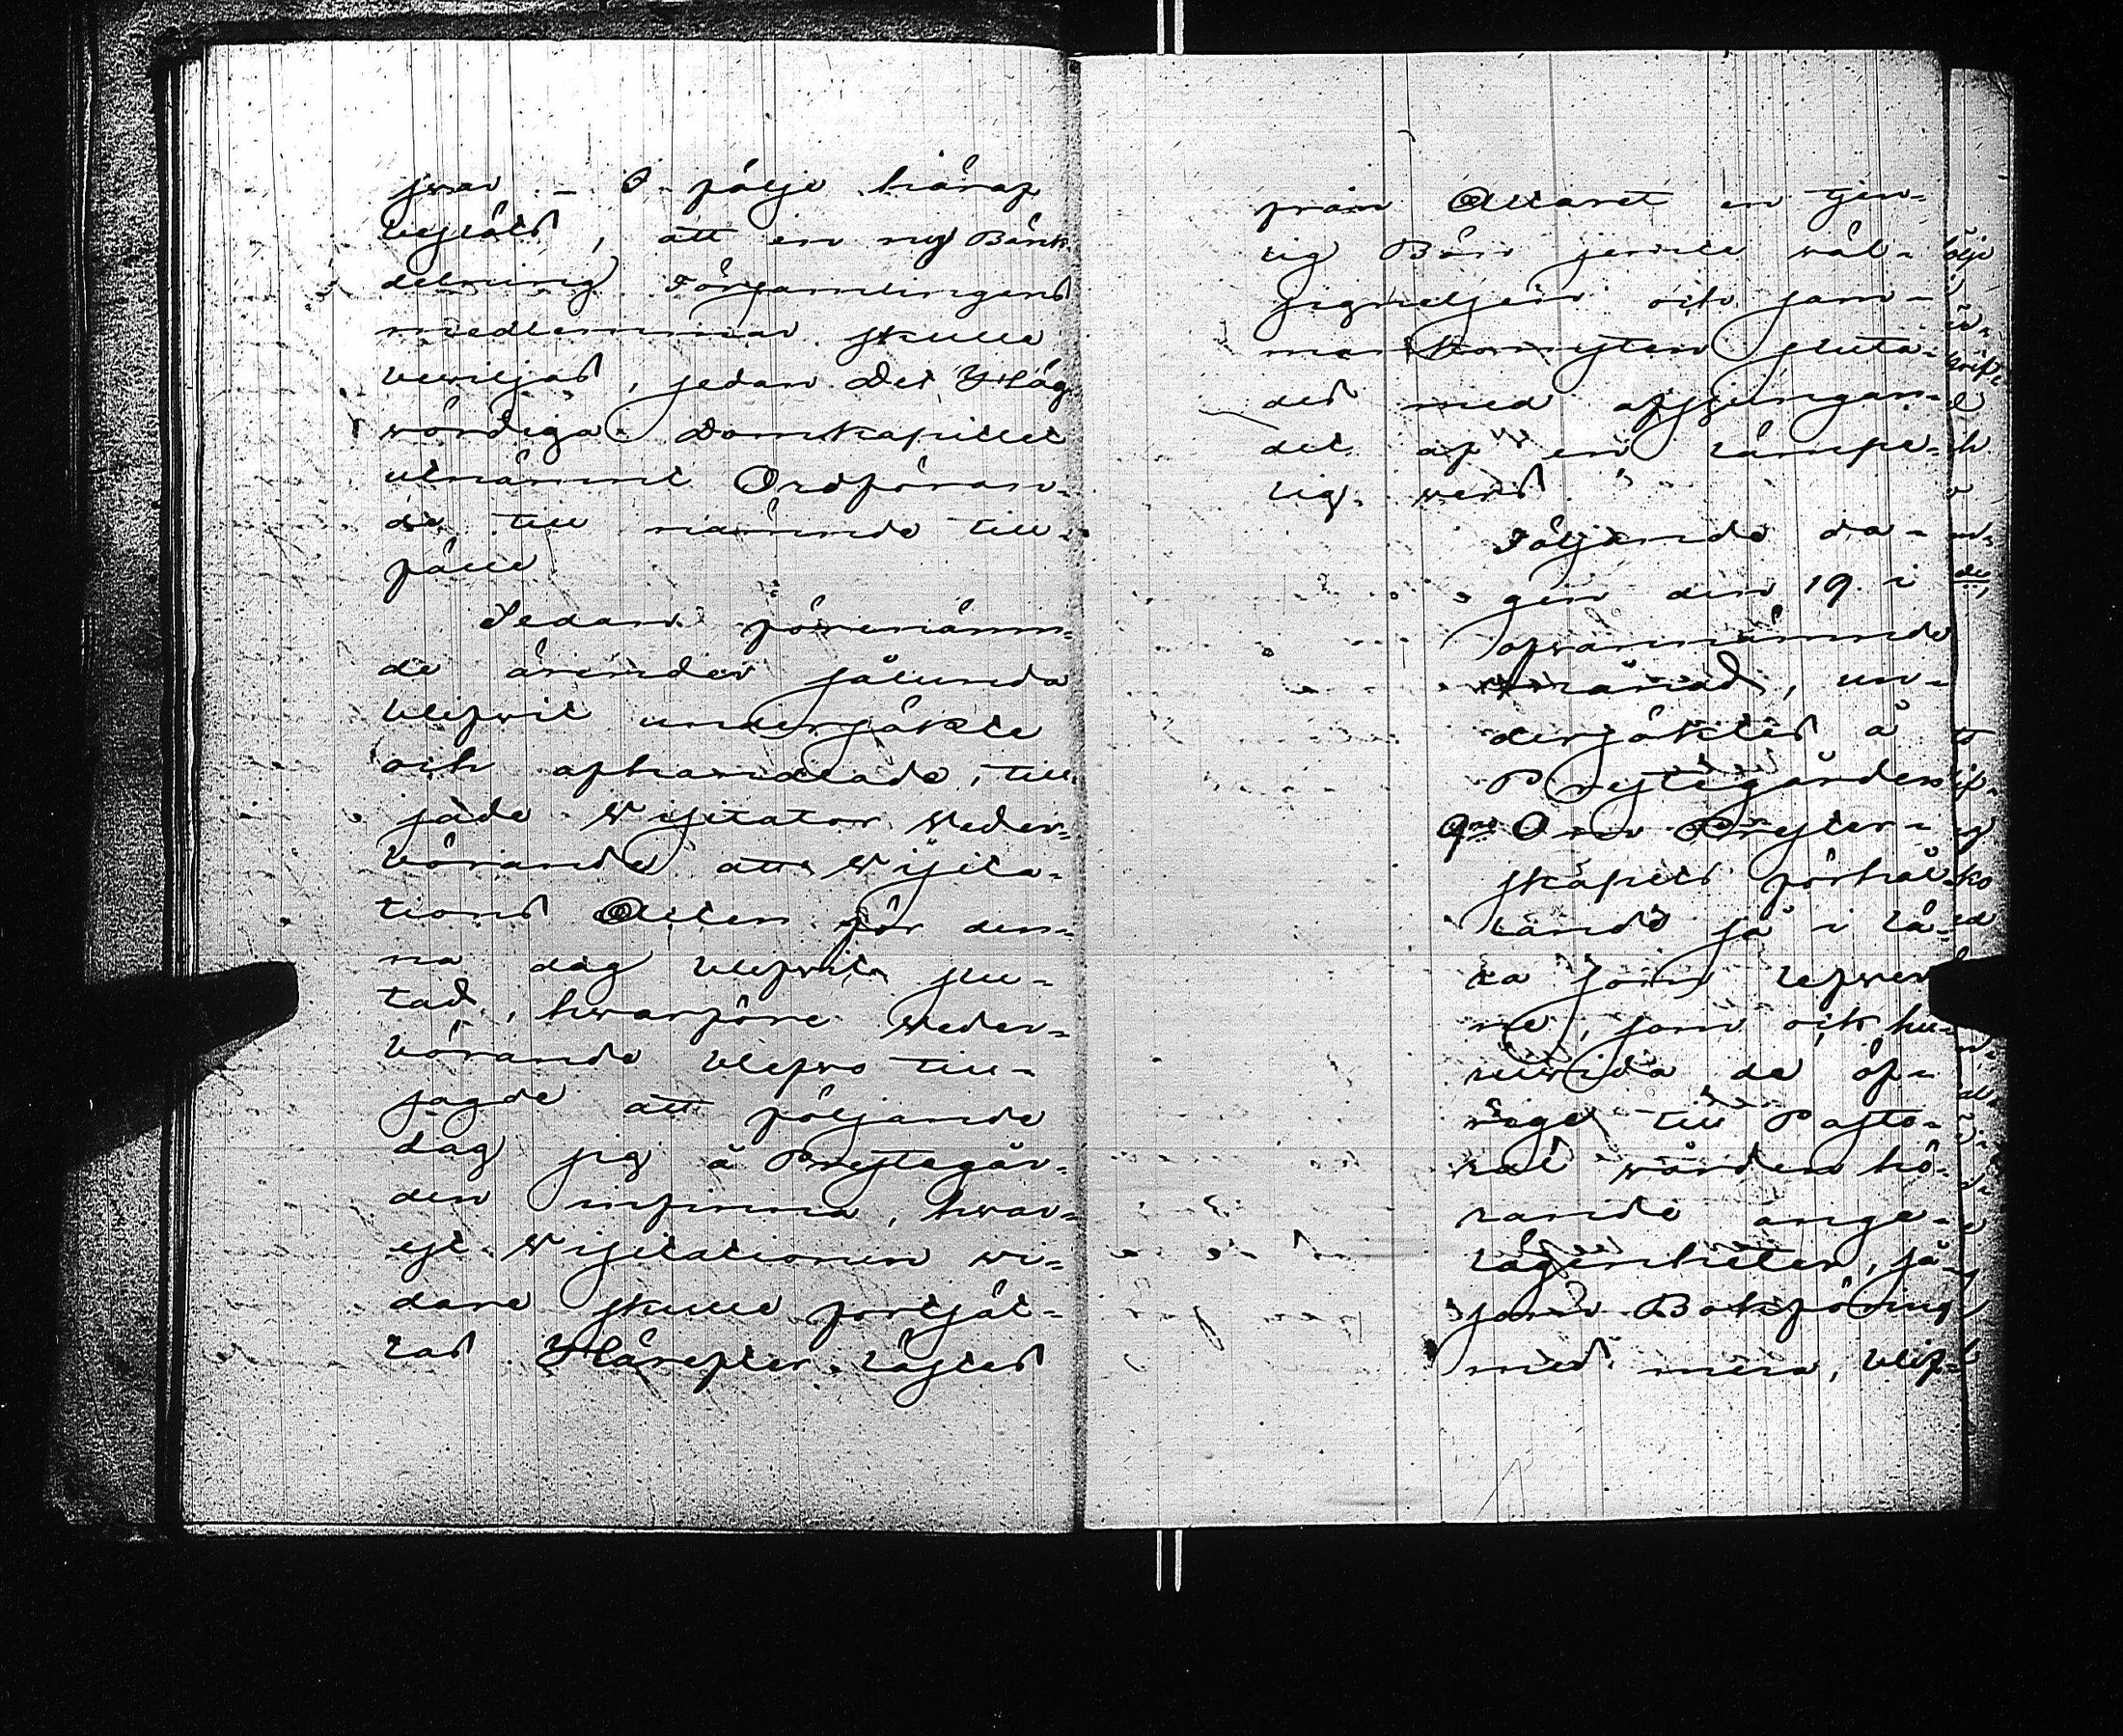 swar – I följe häraf
beslöts, att en ny Bänk-
delning Församlingens
medlemmar skulle
werkställas, sedan Det Hög
wördiga Domkapitlet
utnämnt Ordföran-
de till nämnde till-
fälle
Sedan förenämn-
de ärender sålunda
blifwit undersökte
och afhandlade, till
sade Wisitator Weder-
börande att Wisita-
tions Acten för den-
na dag blifwit slu-
tad, hwarföre Weder-
börande blefwo till-
sagde att följande
dag sig å Prestegår-
den infinna, hwar-
est Wisitationen wi-
dare skulle fortsät-
tas Härefter lästes
från Altaret en tjen-
lig Bön jemte wäl-
signelsen och sam-
mankomsten slutä-
des med afsjungan-
det af en lämpe-
lig wers.
Följande da-
gen den 19. i
ofwannämnde
månad, un-
dersöktes å
Prestegården
Om Prester-
skapets förhål-
lande så i lä-
ra som lefwer
ne, som ock hu-
ruwida de öf-
rige till Pasto-
ral wården hö-
rande ange-
lägenheter, så-
som Bokföring
med mera, blif-
ölje
krift
d
h
r
de,
to
ko
ed